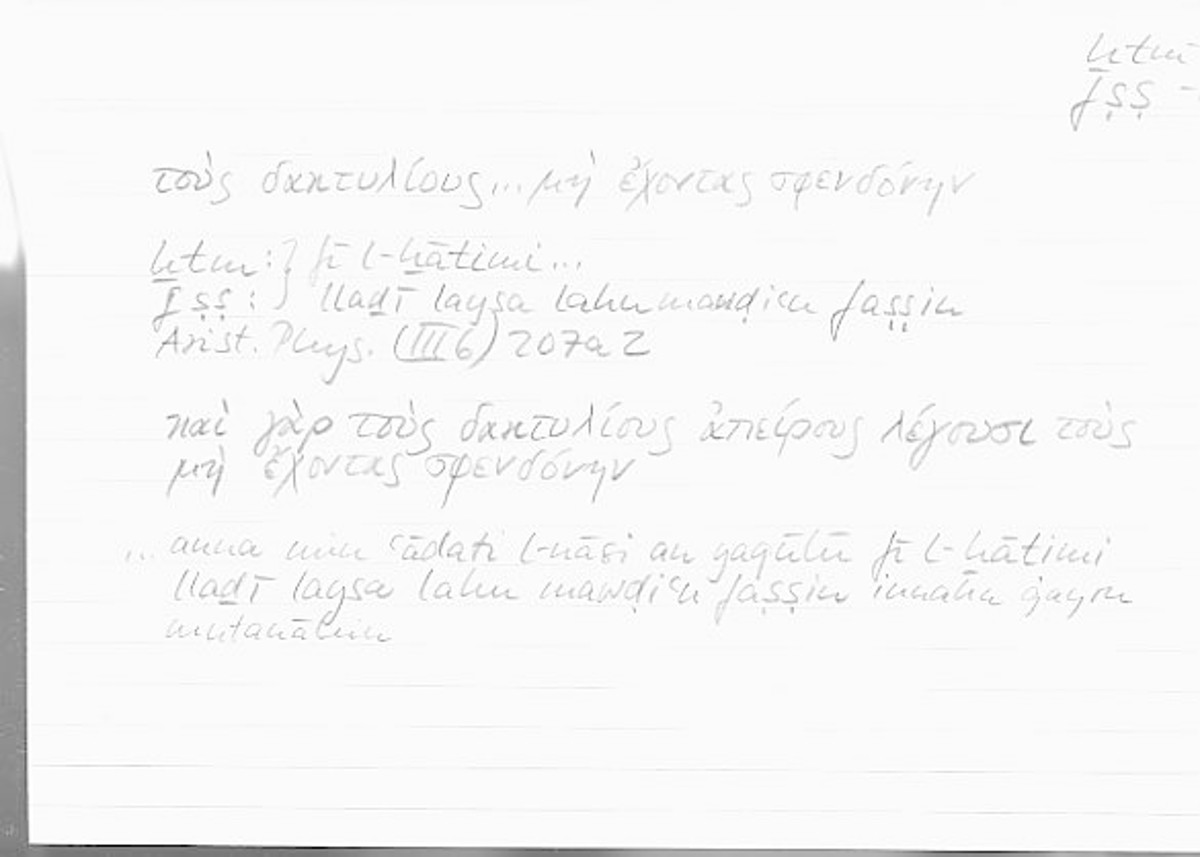 ḫtm
fṣṣ -
τοὺς δακτυλίους... μὴ ἔχοντας σφενδόνην
ḫtm :} fī l-ḫātimi...
fṣṣ : } lladī laysa lahu mawḍiʿu faṣṣin
Arist. Phys. (III 6) 207a2
καὶ γὰρ τοὺς δακτυλίους ἀπείρους λέγουσι τοὺς
μὴ ἔχοντας σφενδόνην
... anna min ʿādati l-nāsi an yaqūlū fī l-ḫātimi
lladī laysa lahu mawḍiʿu faṣṣin innahu ġayru
mutanāhin